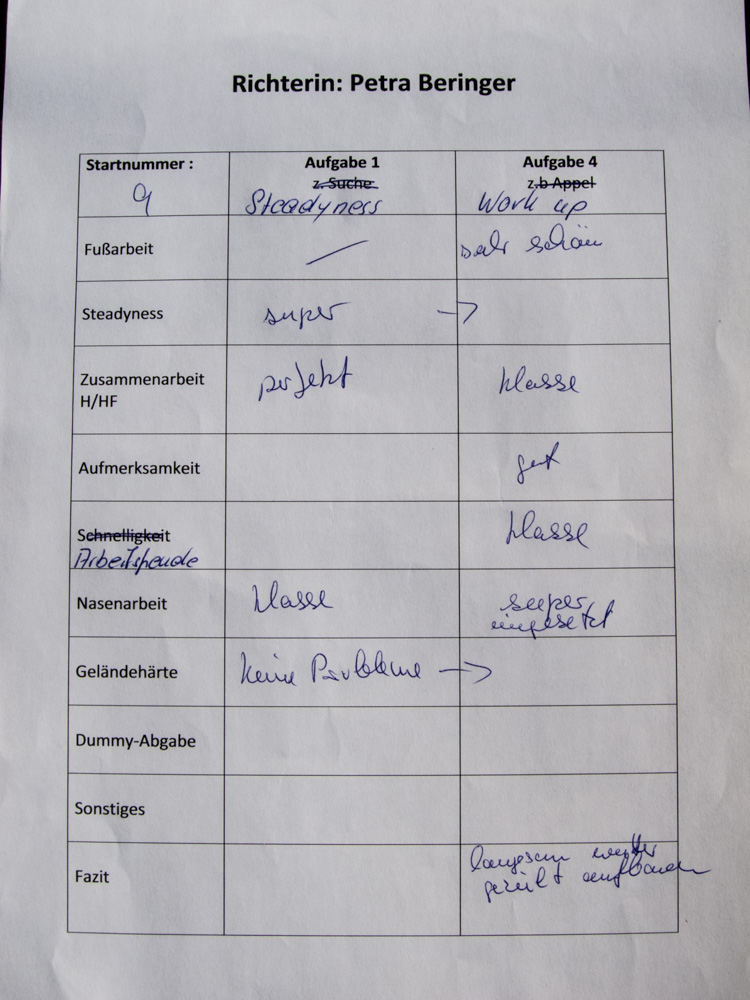 Richterin: Petra Beringer
Startnummer : Aufgabe 1 Aufgabe 4
z. Suche z.b Appel
9 Steadyness Work up
Fußarbeit — sehr schön
Steadyness super →
Zusammenarbeit perfekt klasse
H/HF
Aufmerksamkeit gut
Schnelligkeit klasse
Arbeitsfreude
Nasenarbeit klasse super
eingesetzt
Geländehärte keine Probleme →
Dummy-Abgabe
Sonstiges
Fazit langsam weiter
gezielt aufbauen